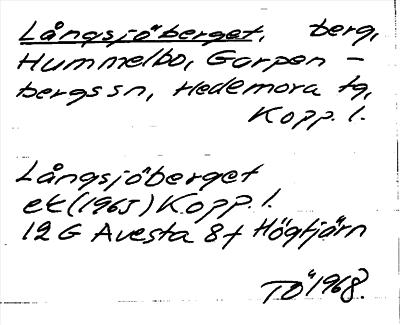 Långsjöberget, berg,
Hummelbo, Garpen-
bergs sn, Hedemora tg,
Kopp. l.
Långsjöberget
ek (1965) Kopp. l.
12 G Avesta 8f Högtjärn
TÖ 1968.